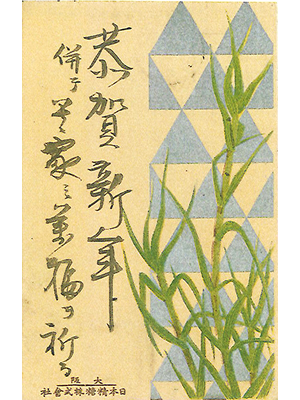 恭賀新年
併テ家之萬福ヲ祈る
大阪
日本精糖株式會社